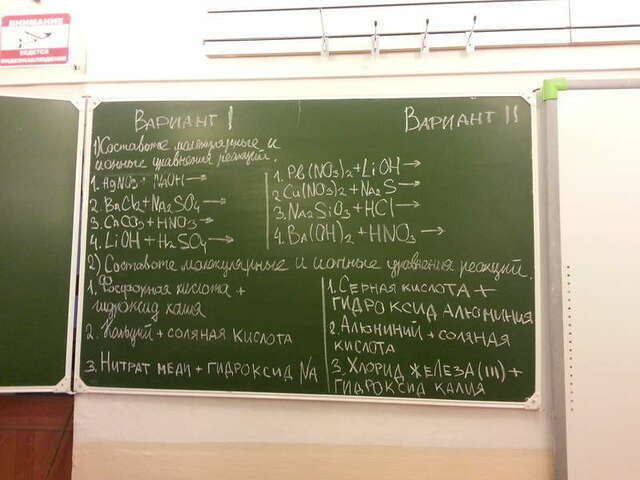 ВНИМАНИЕ
ВЕДЕТСЯ
ВИДЕОНАБЛЮДЕНИЕ
ВАРИАНТ I
1) Составьте молекулярные и
ионные уравнения реакций.
1. AgNO3 + NaOH →
2. BaCl2 + Na2SO4 →
3. CaCO3 + HNO3 →
4. LiOH + H2SO4 →
ВАРИАНТ II
1. Pb(NO3)2 + LiOH →
2 Cu(NO3)2 + Na2S →
3. Na2SiO3 + HCl →
4. Ba(OH)2 + HNO3 →
2) Составьте молекулярные и ионные уравнения реакций.
1. Фосфорная кислота +
гидроксид калия
2. Кальций + соляная кислота
3. Нитрат меди + гидроксид Na
1. Серная кислота +
гидроксид алюминия
2. Алюминий + соляная
кислота
3. Хлорид железа (III) +
гидроксид калия